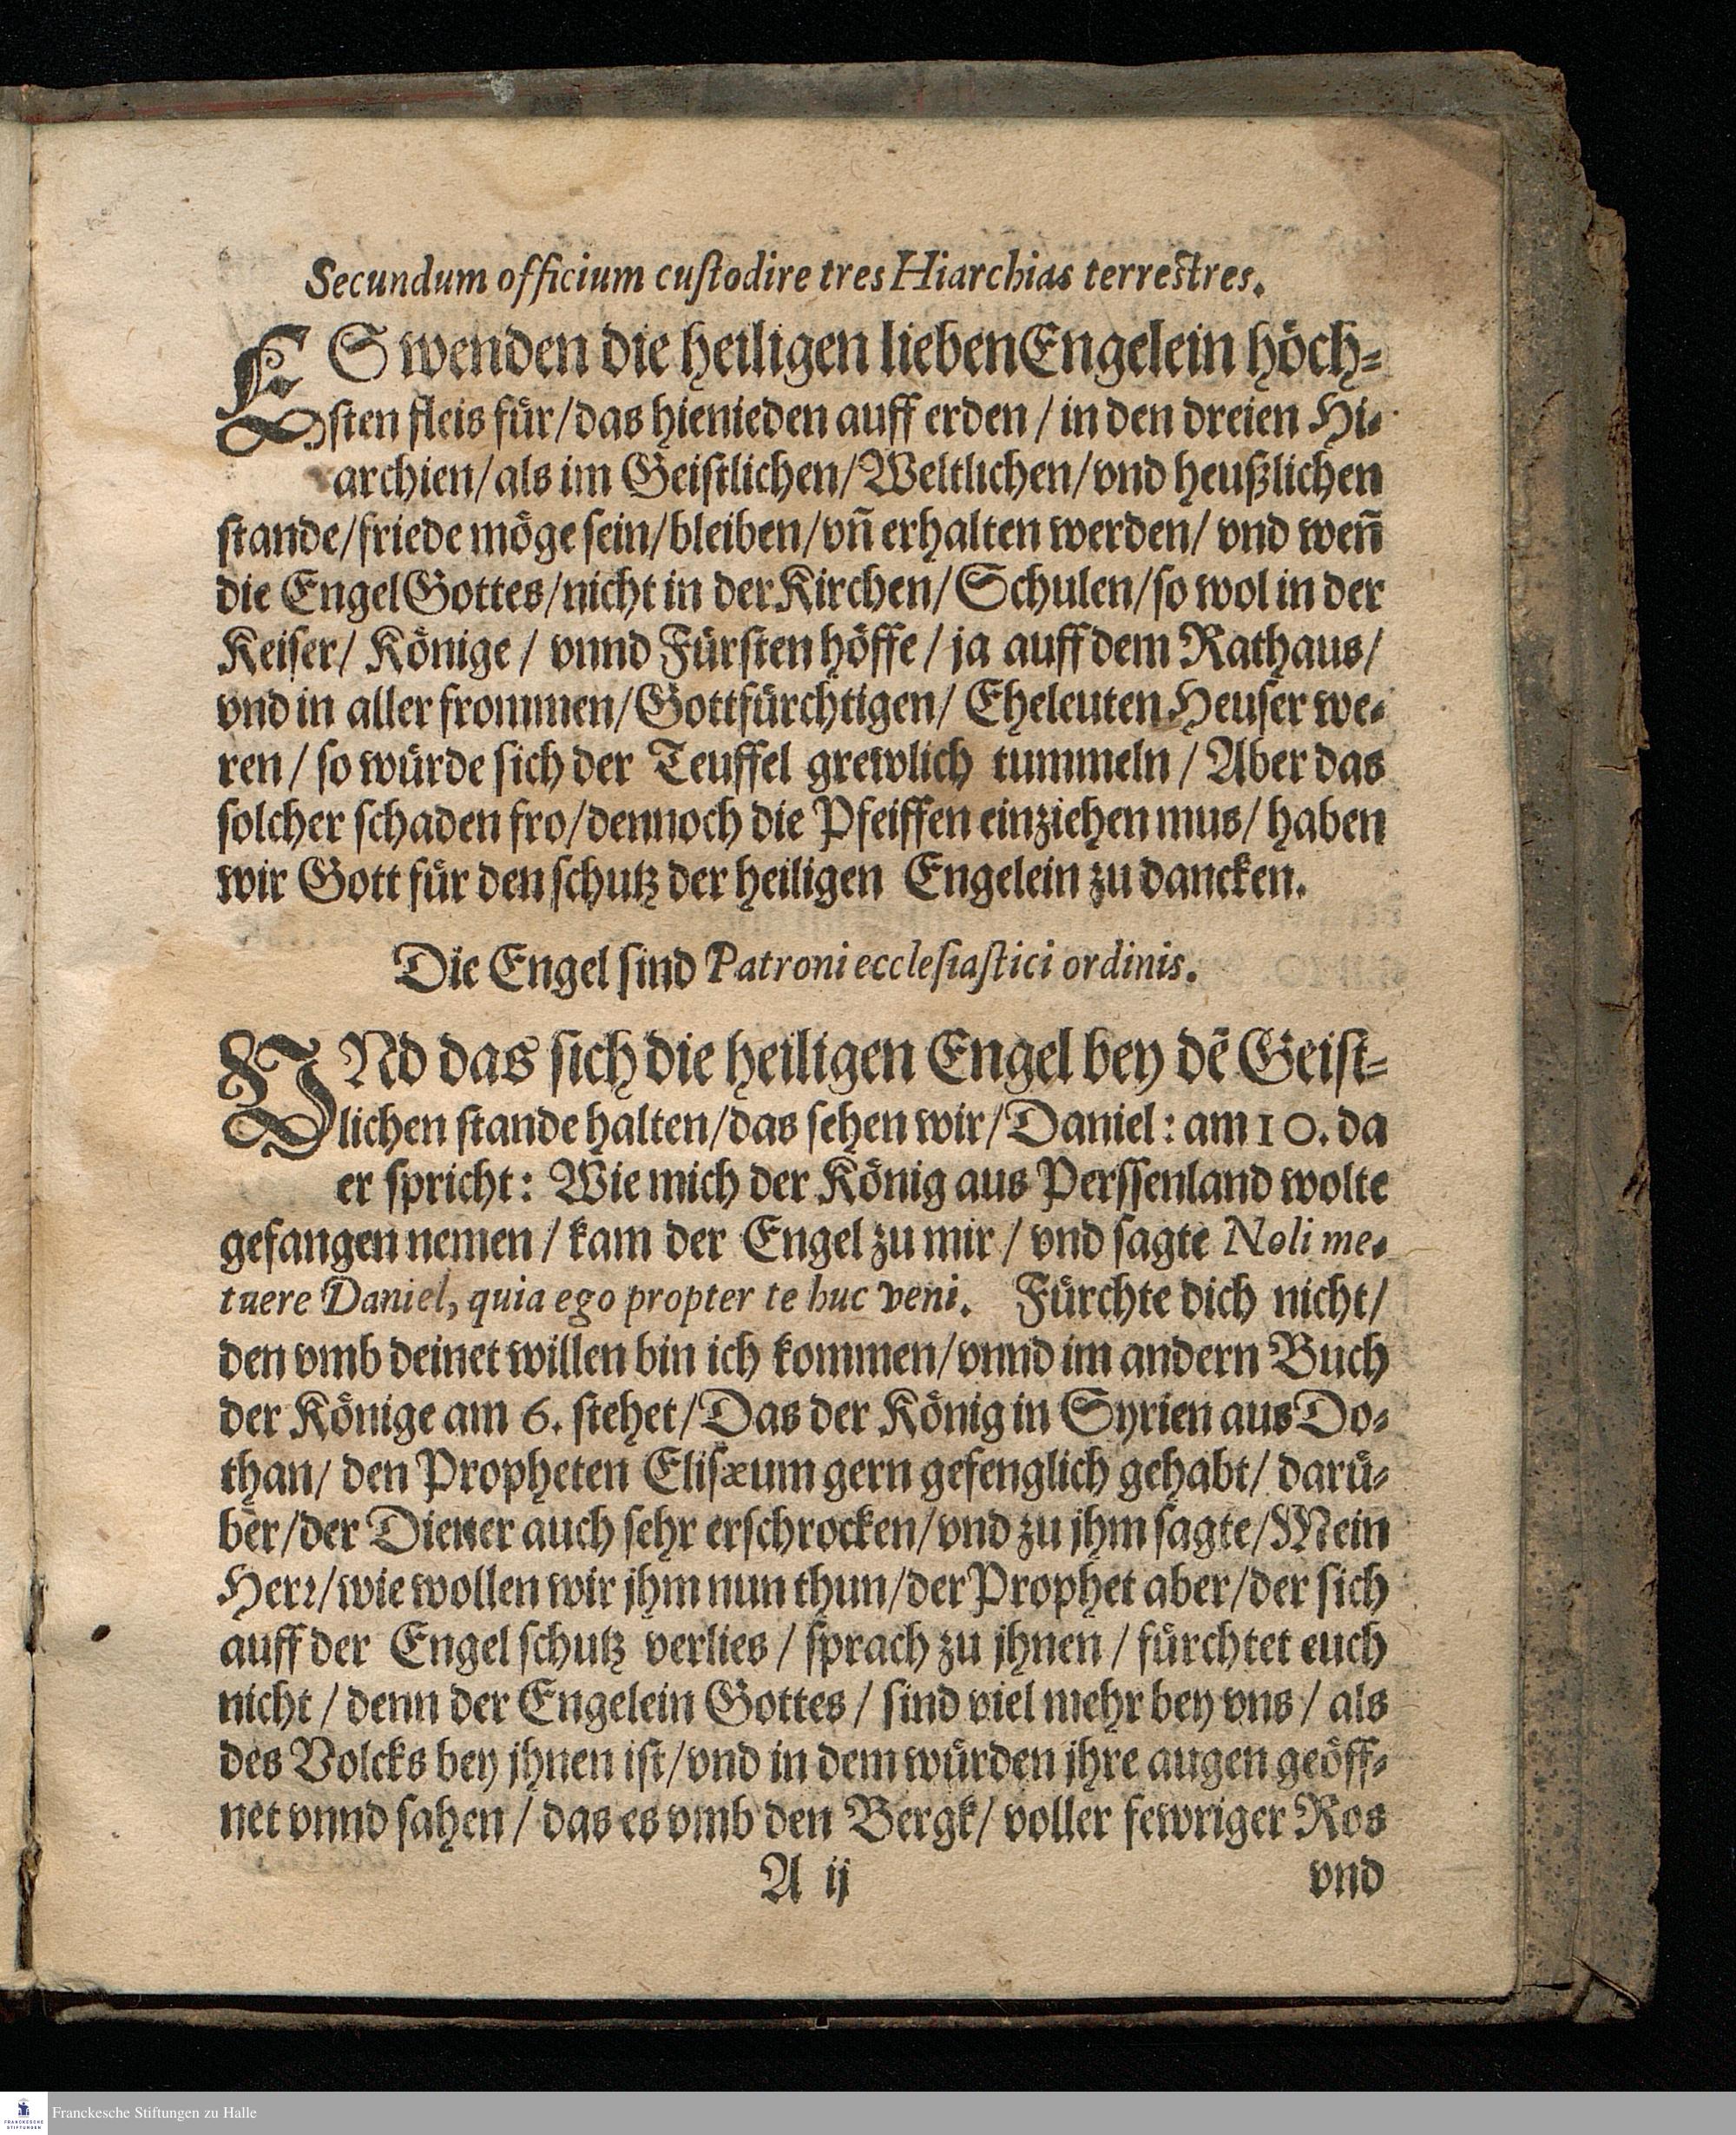 Secundum officium cuſtodire tres Hiarchias terreſtres.
ES wenden die heiligen lieben Engelein höch-
ſten fleis für/das hienieden auff erden / in den dreien Hi-
archien/als im Geiſtlichen/Weltlichen/vnd heußlichen
ſtande/friede möge ſein/bleiben/vn̄ erhalten werden/ vnd wen̄
die Engel Gottes/nicht in der Kirchen/ Schulen/ſo wol in der
Keiſer/ Könige / vnnd Fürſten höffe / ja auff dem Rathaus/
vnd in aller frommen/Gottfürchtigen/ Eheleuten Heuſer we-
ren / ſo würde ſich der Teuffel grewlich tummeln / Aber das
ſolcher ſchaden fro/dennoch die Pfeiffen einziehen mus/ haben
wir Gott für den ſchutz der heiligen Engelein zu dancken.
Die Engel ſind Patroni eccleſiaſtici ordinis.
VNd das ſich die heiligen Engel bey dē Geiſt-
lichen ſtande halten/das ſehen wir/Daniel: am 10. da
er ſpricht: Wie mich der König aus Perſſenland wolte
gefangen nemen / kam der Engel zu mir / vnd ſagte Noli me-
tuere Daniel, quia ego propter te huc veni. Fürchte dich nicht/
den vmb deinet willen bin ich kommen/vnnd im andern Buch
der Könige am 6. ſtehet/Das der König in Syrien aus Do-
than/ den Propheten Eliſæum gern gefenglich gehabt/ darü-
ber/der Diener auch ſehr erſchrocken/vnd zu jhm ſagte/Mein
Herꝛ/wie wollen wir jhm nun thun/der Prophet aber/der ſich
auff der Engel ſchutz verlies / ſprach zu jhnen / fürchtet euch
nicht / denn der Engelein Gottes / ſind viel mehr bey vns / als
des Volcks bey jhnen iſt/vnd in dem würden jhre augen geöff-
net vnnd ſahen / das es vmb den Bergk/ voller fewriger Ros
A ij vnd
Franckesche Stiftungen zu Halle
FRANCKESCHE STIFTUNGEN